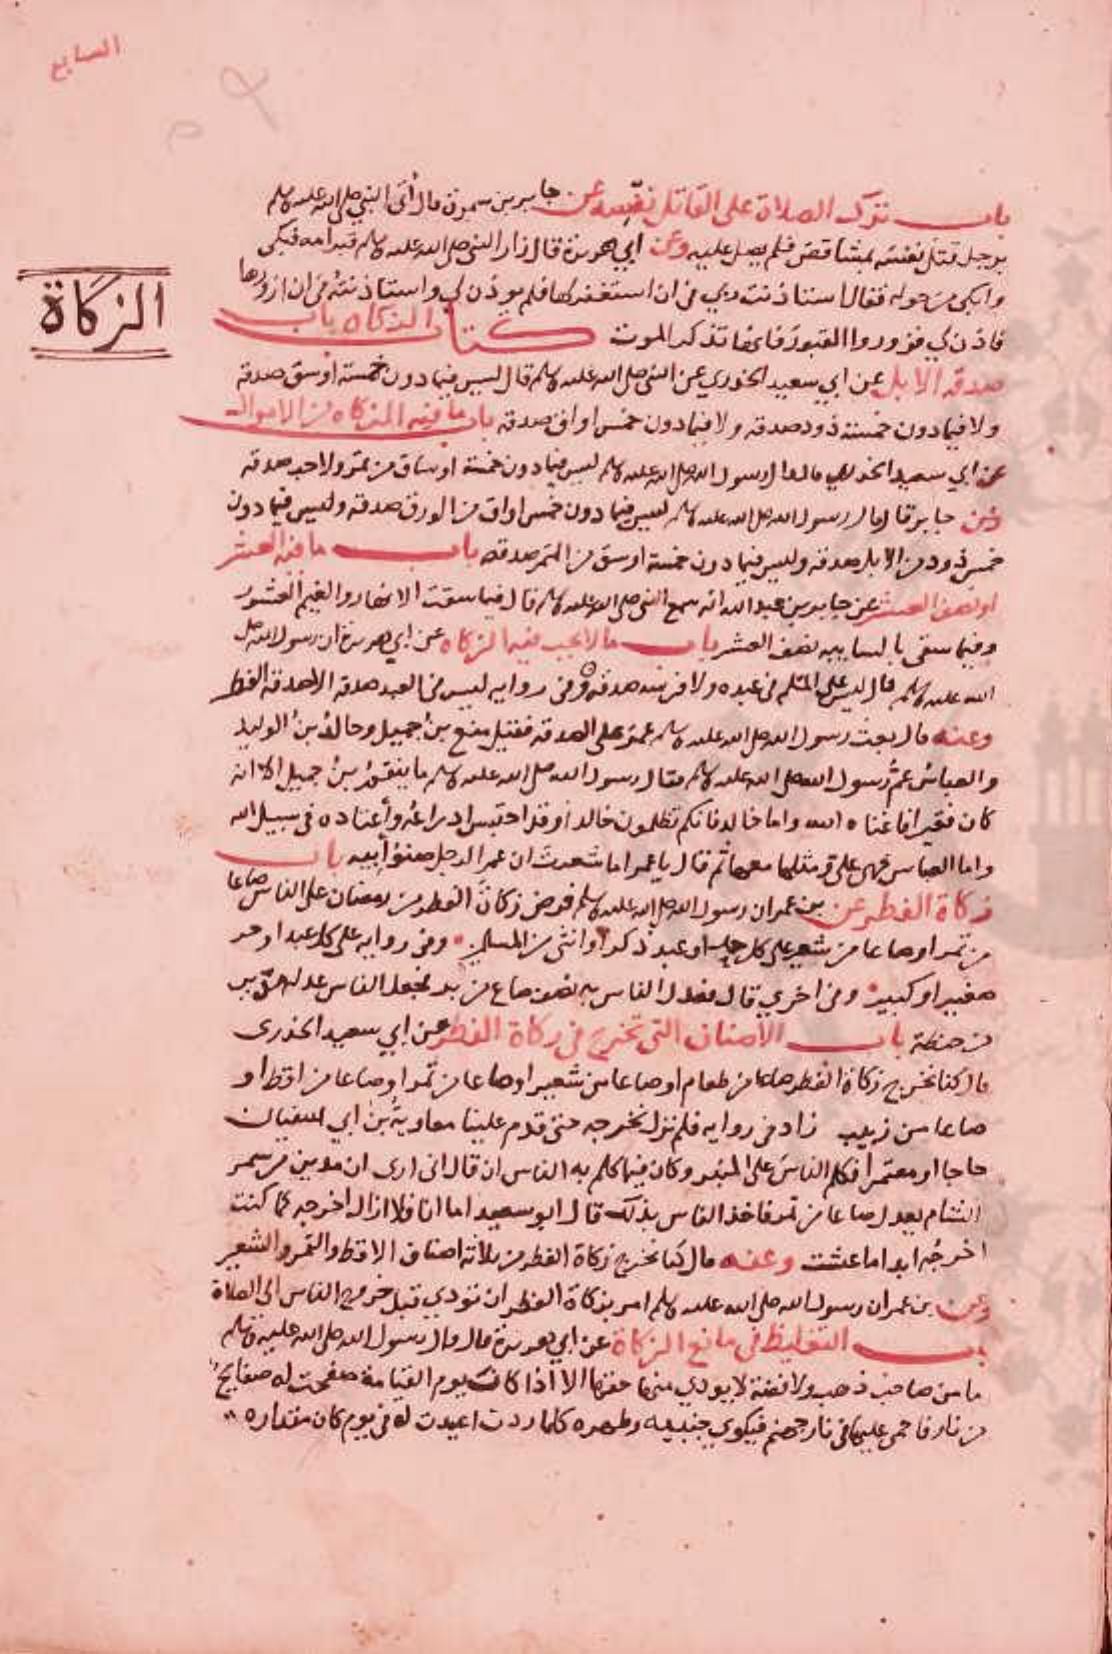 السابع
باب ترك الصلاة على القاتل نفسه عن جابر بن سمرة قال أتى النبي صلى الله عليه وسلم
برجل قتل نفسه بمشاقص فلم يصل عليه وعن ابي هريرة قال زار النبي صلى الله عليه وسلم قبر امه فبكى
وابكى من حوله فقال استاذنت ربي في ان استغفر لها فلم يوذن لي واستاذنته في ان ازورها
فاذن لي فزوروا القبور فانها تذكر الموت كتاب الزكاه باب
الزكاة
صدقة الابل عن ابي سعيد الخدري عن النبي صلى الله عليه وسلم قال ليس فيما دون خمسة اوسق صدقه
ولا فيما دون خمسة ذود صدقه ولا فيما دون خمس اواق صدقه باب ما فيه الزكاه من الاموال
عن ابي سعيد الخدري قال قال رسول الله صلى الله عليه وسلم ليس فيما دون خمسة اوساق من تمر ولا حب صدقه
وعن جابر قال قال رسول الله صلى الله عليه وسلم ليس فيما دون خمس اواق من الورق صدقه وليس فيما دون
خمس ذود من الابل صدقه وليس فيما دون خمسة اوسق من التمر صدقه باب ما فيه العشر
او نصف العشر عن جابر بن عبد الله انه سمع النبي صلى الله عليه وسلم قال فيما سقت الانهار والغيم العشور
وفيما سقي بالسانيه نصف العشر باب ما لا تجب فيه الزكاه عن ابي هريرة ان رسول الله صلى
الله عليه وسلم قال ليس على المسلم في عبده ولا فرسه صدقه وفي روايه ليس في العبد صدقه الا صدقة الفطر
وعنه قال بعث رسول الله صلى الله عليه وسلم عمر على الصدقه فقيل منع بن جميل وخالد بن الوليد
والعباس عم رسول الله صلى الله عليه وسلم فقال رسول الله صلى الله عليه وسلم ما ينقم بن جميل الا انه
كان فقيرا فاغناه الله واما خالد فانكم تظلمون خالدا وقد احتبس ادراعه وأعتاده في سبيل الله
واما العباس فهي علي ومثلها معها ثم قال يا عمر اما شعرت ان عم الرجل صنو أبيه باب
زكاة الفطر عن بن عمر ان رسول الله صلى الله عليه وسلم فرض زكاة الفطر من رمضان على الناس صاعا
من تمر او صاعا من شعير على كل حر او عبد ذكر او انثى من المسلمين وفي روايه على كل عبد او حر
صغير او كبير وفي اخري قال فعدل الناس به نصف صاع من بر فجعل الناس عدله مدين
من حنطة باب الأصناف التي تخرج في زكاة الفطر عن ابي سعيد الخدرى
قال كنا نخرج زكاة الفطر صاعا من طعام او صاعا من شعير او صاعا من تمر او صاعا من اقط او
صاعا من زبيب زاد في روايه فلم نزل نخرجه حتى قدم علينا معاوية بن ابي سفيان
حاجا او معتمرا فكلم الناس على المنبر وكان فيما كلم به الناس ان قال اني ارى ان مدين من سمر
الشام يعدل صاعا من تمر فاخذ الناس بذلك قال ابو سعيد اما انا فلا ازال اخرجه كما كنت
اخرجه ابدا ما عشت وعنه قال كنا نخرج زكاة الفطر من ثلاثه اصناف الاقط والتمر والشعير
وعن بن عمر ان رسول الله صلى الله عليه وسلم امر بزكاة الفطر ان تودي قبل خروج الناس الى الصلاة
باب التغليظ في مانع الزكاة عن ابي هريرة قال قال رسول الله صلى الله عليه وسلم
ما من صاحب ذهب ولا فضة لا يودي منها حقها الا اذا كان يوم القيامة صفحت له صفايح
من نار فاحمى عليها في نار جهنم فيكوي جنبيه وظهره كلما ردت اعيدت له في يوم كان مقداره